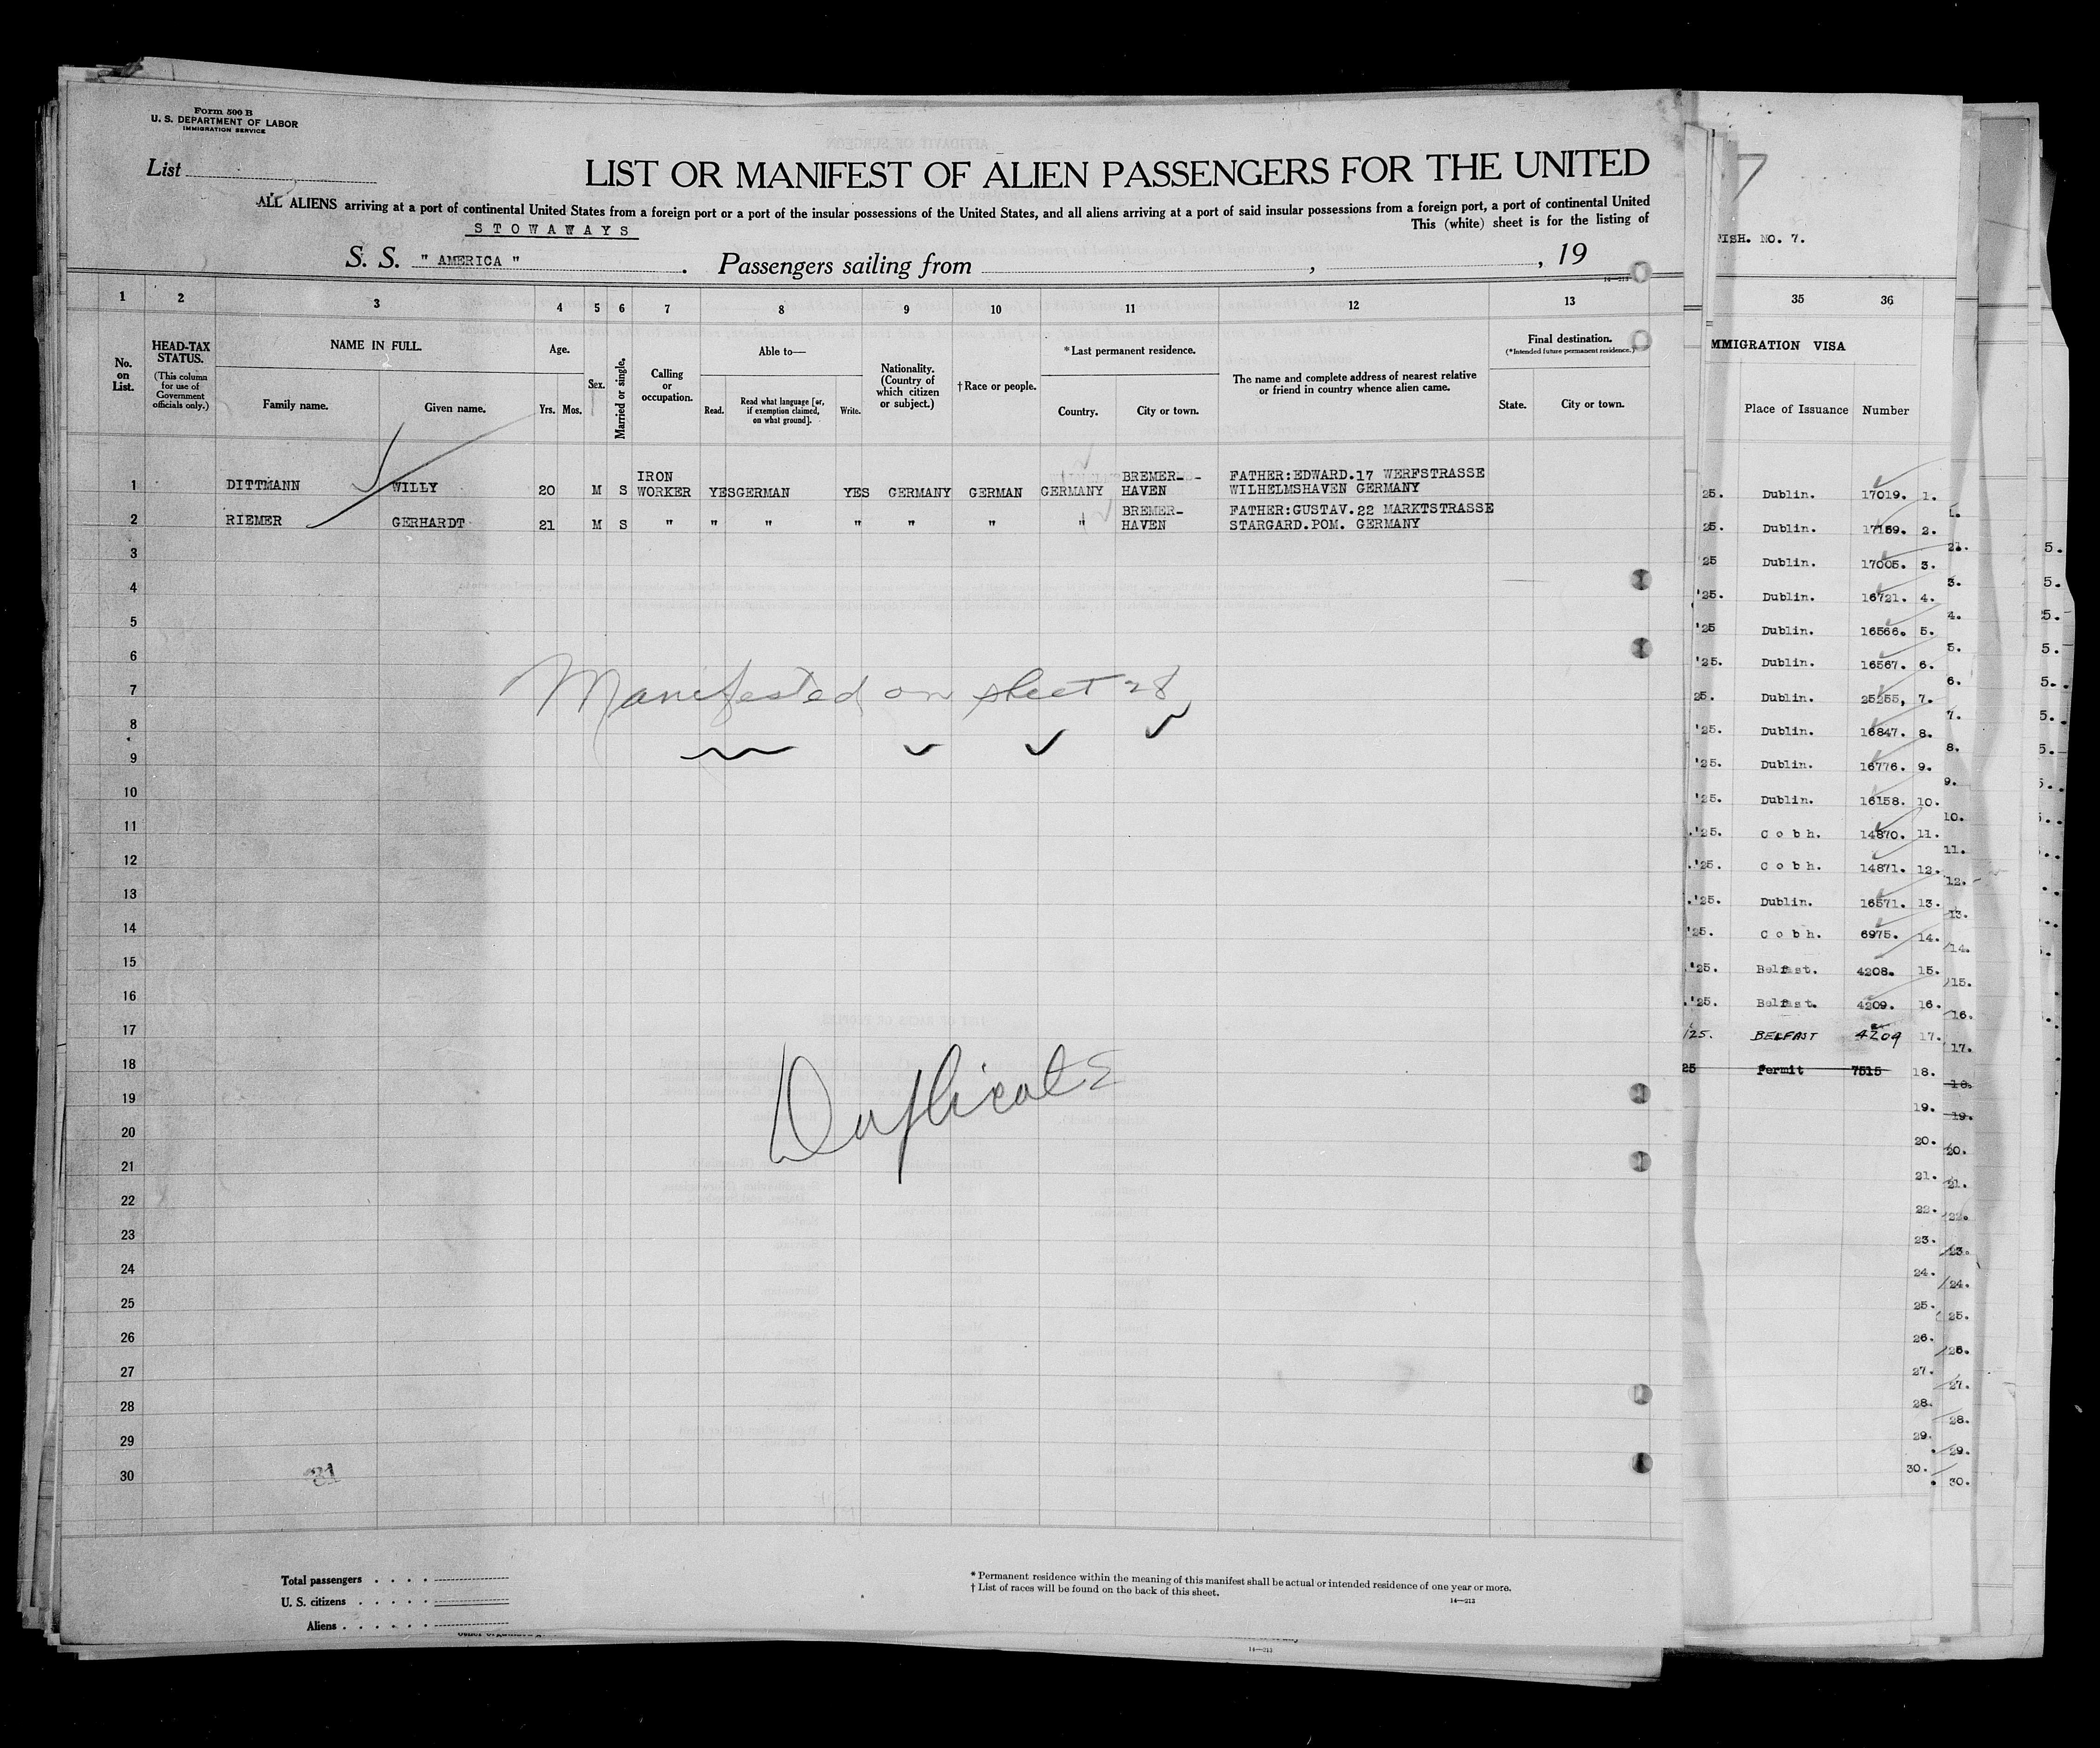 Form 500 B
U. S. DEPARTMENT OF LABOR
IMMIGRATION SERVICE
List
LIST OR MANIFEST OF ALIEN PASSENGERS FOR THE UNITED
ALL ALIENS arriving at a port of continental United States from a foreign port or a port of the insular possessions of the United States, and all aliens arriving at a port of said insular possessions from a foreign port, a port of continental United
This (white) sheet is for the listing of
STOWAWAYS
S. S. " AMERICA " . Passengers sailing from , , 19
14—213
1 2 3 4 5 6 7 8 9 10 11 12 13
No. on List.
HEAD-TAX STATUS.
(This column for use of Government officials only.)
NAME IN FULL.
Family name. Given name.
Age.
Yrs. Mos.
Sex.
Married or single.
Calling or occupation.
Able to—
Read. Read what language [or, if exemption claimed, on what ground]. Write.
Nationality. (Country of which citizen or subject.)
† Race or people.
* Last permanent residence.
Country. City or town.
The name and complete address of nearest relative or friend in country whence alien came.
Final destination.
(*Intended future permanent residence.)
State. City or town.
1 DITTMANN WILLY 20 M S IRON WORKER YES GERMAN YES GERMANY GERMAN GERMANY BREMER-HAVEN FATHER:EDWARD.17 WERFSTRASSE
WILHELMSHAVEN GERMANY
2 RIEMER GERHARDT 21 M S " " " " " " " BREMER-HAVEN FATHER:GUSTAV.22 MARKTSTRASSE
STARGARD.POM. GERMANY
3
4
5
6
7
Manifested on sheet 28
8
9
10
11
12
13
14
15
16
17
18
19
Duplicate
20
21
22
23
24
25
26
27
28
29
30
31
Total passengers
U. S. citizens
Aliens
* Permanent residence within the meaning of this manifest shall be actual or intended residence of one year or more.
† List of races will be found on the back of this sheet.
14—213
14—213
7
NO. 7.
35 36
MMIGRATION VISA
Place of Issuance Number
25. Dublin. 17019. 1.
25. Dublin. 17169. 2.
25 Dublin. 17005. 3.
'25. Dublin. 16721. 4.
'25 Dublin. 16566. 5.
'25. Dublin. 16567. 6.
25. Dublin. 7.
'25. Dublin. 16847. 8.
'25. Dublin. 16776. 9.
'25. Dublin. 16158. 10.
.'25. Cobh. 14870. 11.
.'25. Cobh. 14871. 12.
.'25. Dublin. 16571. 13.
'25. Cobh. 6975. 14.
.'25. Belfast. 4208. 15.
.'25. Belfast. 4209. 16.
25. BELFAST 4209 17.
25 Permit 7515 18.
19.
20.
21.
22.
23.
24.
25.
26.
27.
28.
29.
30.